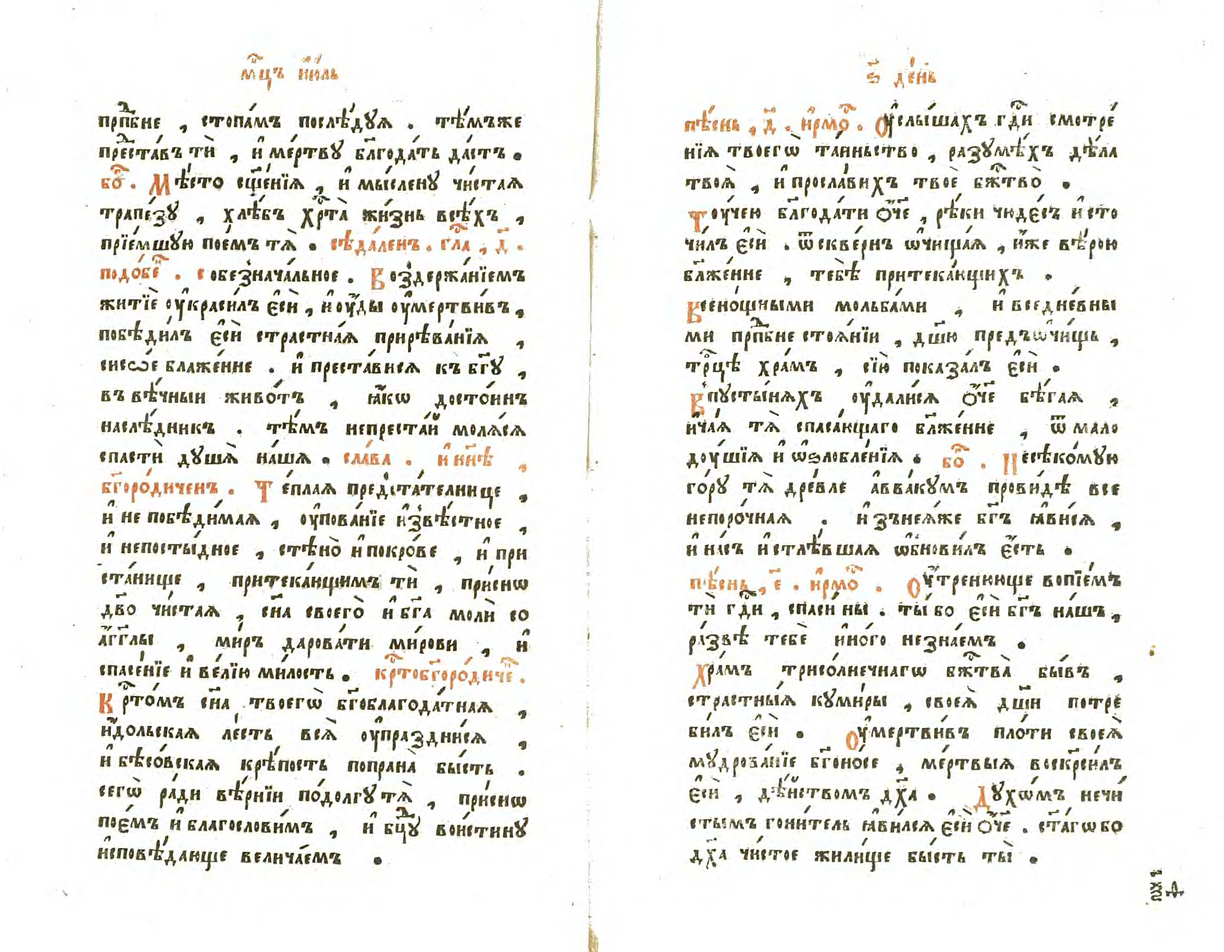 мⷭ҇цъ і҆ю́ль
прпⷣбне , стопа́мъ послѣ́дуꙗ . тѣ́мъже
преста́въ тѝ , и҆ ме́ртву блгⷣода́ть да́стъ .
бо҃ . Мѣ́сто сщ҃е́нїѧ , и҆ мы́слену чи́стаѧ
трапе́зу , хлѣ́бъ хрⷭ҇та̀ жи́знь всѣ́хъ ,
прїе́мшую пое́мъ тѧ̀ . сѣда́ленъ . гла́ , д҃ .
подо́бе . собезнача́льное . Воздержа́нїемъ
житїѐ ᲂу҆краси́лъ є҆сѝ , и҆ ᲂу҆́ды ᲂу҆мертви́въ ,
побѣди́лъ є҆сѝ стра́стнаѧ прирѣва́нїѧ ,
сисо́е блаже́нне . и҆ преста́висѧ къ бг҃у ,
въ вѣ́чныи живо́тъ , ꙗ҆́кѡ досто́инъ
наслѣ́дникъ . тѣ́мъ непреста́й молѧ́сѧ
спастѝ ду́шѧ на́шѧ . сла́ва . и҆ ны́нѣ ,
бг҃оро́диченъ . Те́плаѧ предста́телнице ,
и҆ не побѣди́маѧ , ᲂу҆пова́нїе и҆звѣ́стное ,
и҆ непосты́дное , стѣно̀ и҆ покро́ве , и҆ при
ста́нище , притека́ющимъ тѝ , при́снѡ
дв҃о чи́стаѧ , сн҃а своего̀ и҆ бг҃а молѝ со
а҆́гг҃лы , ми́ръ дарова́ти ми́рови , и҆
спасе́нїе и҆ ве́лїю ми́лость . крⷭ҇тобг҃оро́диче .
Крⷭ҇то́мъ сн҃а твоегѡ̀ бг҃облагода́тнаѧ ,
и҆́дольскаѧ ле́сть всѧ̀ ᲂу҆праздни́сѧ ,
и҆ бѣсо́вскаѧ крѣ́пость попрана̀ бы́сть .
сегѡ̀ ра́ди вѣ́рнїи подолгу́ тѧ , при́снѡ
пое́мъ и҆ благослови́мъ , и҆ бц҃у вои́стину
и҆сповѣ́дающе велича́емъ .
ѕ҃ де́нь
пѣ́снь , д҃ . и҆рмо́ . Оу҆слы́шахъ гдⷭ҇и смотре́
нїѧ твоегѡ̀ та́иньство , разумѣ́хъ дѣ́ла
твоѧ̀ , и҆ просла́вихъ твоѐ бж҃ство̀ .
Тоу́чею блгⷣода́ти ѻ҆́ч҃е , рѣ́ки чюде́съ и҆сто
чи́лъ є҆сѝ . ѿ скве́рнъ ѡ҆чища́ѧ , и҆́же вѣ́рою
бл҃же́нне , тебѣ̀ притека́ющихъ .
Всено́щными мольба́ми , и҆ вседне́вны
ми прпⷣбне стоѧ́нїи , дш҃ю предъѡчи́щь ,
трⷪ҇цѣ хра́мъ , сїю̀ показа́лъ є҆сѝ .
Впусты́нѧхъ ᲂу҆дали́сѧ ѻ҆́ч҃е бѣ́гаѧ ,
и҆ ча́ѧ тѧ̀ спаса́ющаго бл҃же́нне , ѿ мало
доу́шїѧ и҆ ѡ҆ѕлобле́нїѧ . бо҃ . Несѣко́мую
го́ру тѧ̀ дре́вле а҆вваку́мъ прови́дѣ все
непоро́чнаѧ . и҆зънеѧ́же бг҃ъ ꙗ҆ви́сѧ ,
и҆ на́съ и҆стлѣ́вшаѧ ѡ҆бнови́лъ є҆́сть .
пѣ́снь , е҃ . и҆рмо́ . Оу҆́тренюще вопїе́мъ
тѝ гдⷭ҇и , спаси́ ны . ты́ бо є҆сѝ бг҃ъ на́шъ ,
ра́звѣ тебѐ и҆но́го незна́емъ .
Хра́мъ трисо́лнечнагѡ бж҃ства̀ бы́въ ,
стра́стныѧ куми́ры , своеѧ̀ дш҃и потре
би́лъ є҆сѝ . Оу҆мертви́въ пло́ти своеѧ̀
мудрова́нїе бг҃оно́се , ме́ртвыѧ воскреси́лъ
є҆сѝ , дѣ́йствомъ дх҃а . Духѡ́мъ нечи́
стымъ гони́тель ꙗ҆ви́лсѧ є҆сѝ ѻ҆́ч҃е . ст҃а́гѡ бо
дх҃а чи́стое жили́ще бы́сть ты̀ .